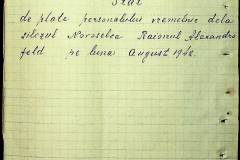 Stat
de plata personalului vremelnic dela
silozul Novoselca Raionul Alexandru
feld pe luna August 1942.